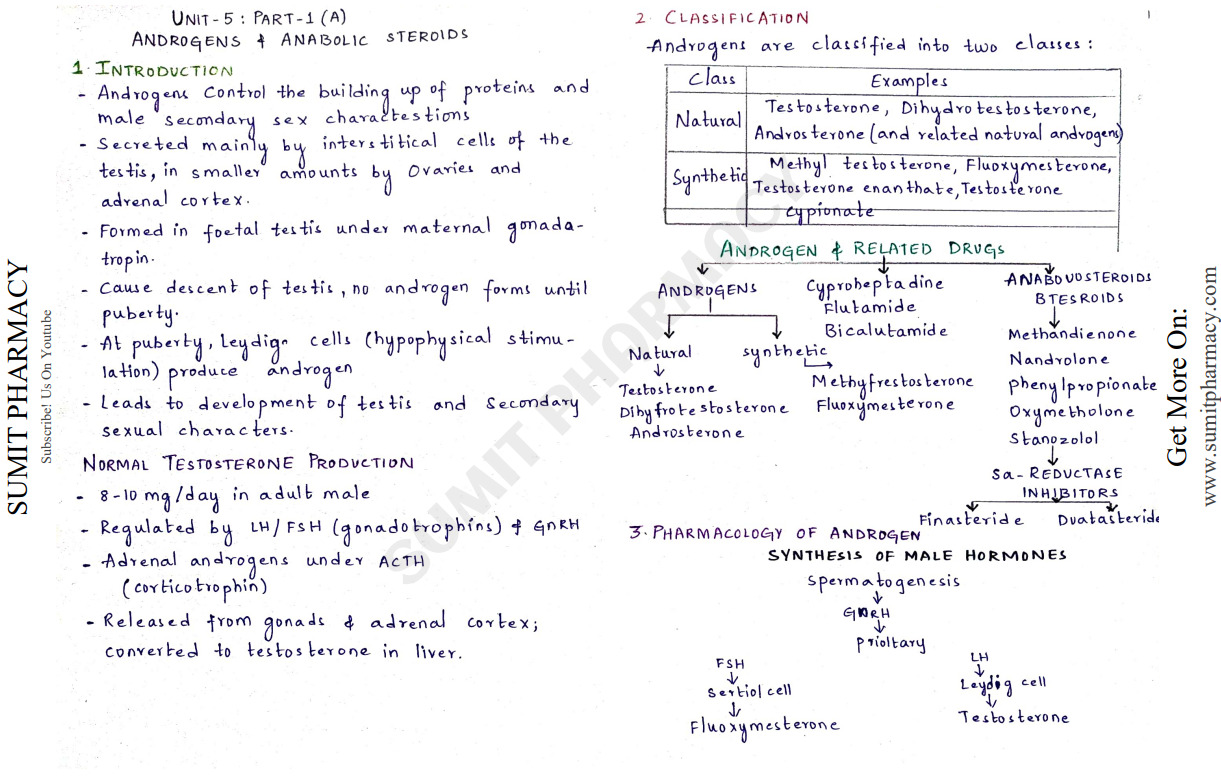 UNIT-5: PART-1 (A)
ANDROGENS & ANABOLIC STEROIDS
1. INTRODUCTION
- Androgens Control the building up of proteins and
male secondary sex charactestions
- Secreted mainly by interstitical cells of the
testis, in smaller amounts by Ovaries and
adrenal cortex.
- Formed in foetal testis under maternal gonada-
tropin.
- Cause descent of testis, no androgen forms until
puberty.
- At puberty, Leydign cells (hypophysical stimu-
lation) produce androgen
- Leads to development of testis and Secondary
sexual characters.
NORMAL TESTOSTERONE PRODUCTION
- 8-10 mg/day in adult male
- Regulated by LH/FSH (gonadotrophins) & GnRH
- Adrenal androgens under ACTH
(corticotrophin)
- Released from gonads & adrenal cortex;
converted to testosterone in liver.
2. CLASSIFICATION
1
-Androgens are classified into two classes:
Class Examples
Natural Testosterone, Dihydrotestosterone,
Androsterone (and related natural androgens)
Synthetic Methyl testosterone, Fluoxymesterone,
Testosterone enanthate, Testosterone
cypionate
ANDROGEN & RELATED DRUGS
ANDROGENS
Natural
Testosterone
Dihyfrotestosterone
Androsterone
synthetic
Methyfrestosterone
Fluoxymesterone
Cyproheptadine
Flutamide
Bicalutamide
ANABOVOSTEROIDS
BTESROIDS
Methandienone
Nandrolone
phenylpropionate
Oxymetholone
Stanozolol
Sa-REDUCTASE
INHIBITORS
Finasteride Duatasteride
3. PHARMACOLOGY OF ANDROGEN
SYNTHESIS OF MALE HORMONES
Spermatogenesis
GnRH
Prioltary
FSH
Sertiol cell
Fluoxymesterone
LH
Leydig cell
Testosterone
SUMIT PHARMACY
Subscribe! Us On Youtube
Get More On:
www.sumitpharmacy.com
SUMIT PHORMACY